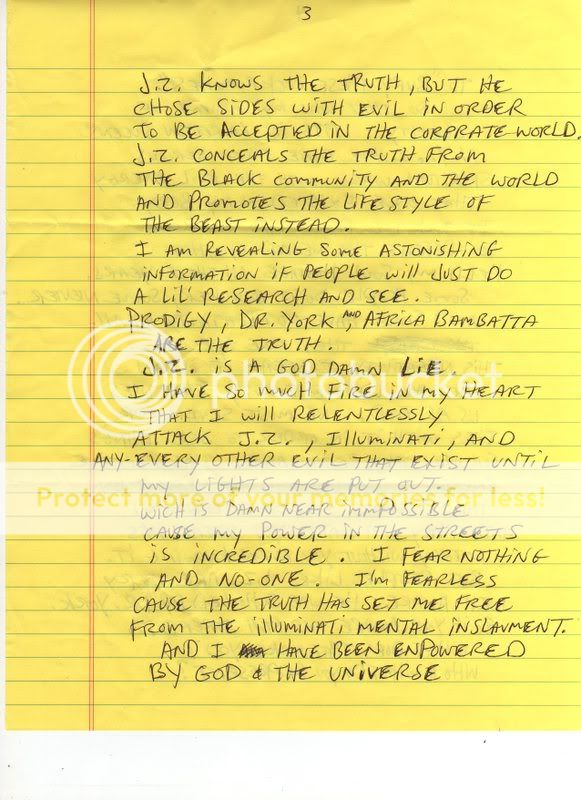 3
J.Z. KNOWS THE TRUTH, BUT HE
CHOSE SIDES WITH EVIL IN ORDER
TO BE ACCEPTED IN THE CORPRATE WORLD.
J.Z. CONCEALS THE TRUTH FROM
THE BLACK COMMUNITY AND THE WORLD
AND PROMOTES THE LIFESTYLE OF
THE BEAST INSTEAD.
I AM REVEALING SOME ASTONISHING
INFORMATION IF PEOPLE WILL JUST DO
A LIL' RESEARCH AND SEE.
PRODIGY, DR. YORK AND AFRICA BAMBATTA
ARE THE TRUTH.
J.Z. IS A GOD DAMN LIE.
I HAVE SO MUCH FIRE IN MY HEART
THAT I WILL RELENTLESSLY
ATTACK J.Z., ILLUMINATI, AND
ANY-EVERY OTHER EVIL THAT EXIST UNTIL
MY LIGHTS ARE PUT OUT.
WICH IS DAMN NEAR IMMPOSSIBLE
CAUSE MY POWER IN THE STREETS
IS INCREDIBLE. I FEAR NOTHING
AND NO-ONE. I'M FEARLESS
CAUSE THE TRUTH HAS SET ME FREE
FROM THE ILLUMINATI MENTAL INSLAVMENT.
AND I HAVE BEEN ENPOWERED
BY GOD & THE UNIVERSE
photobucket
Protect more of your memories for less!